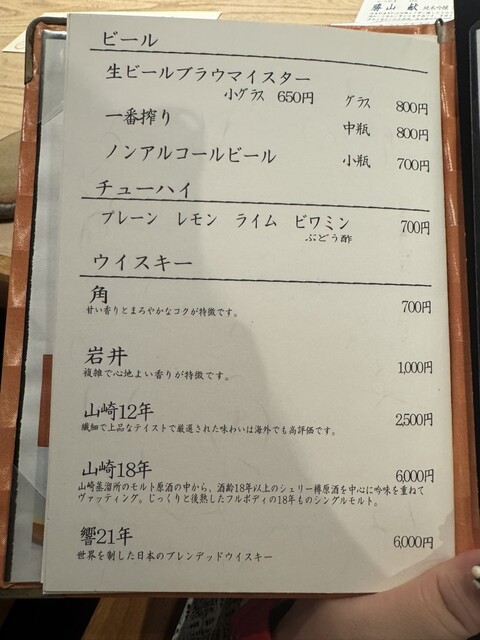 勝山 献 純米吟醸
ビール
生ビールブラウマイスター
小グラス 650円 グラス 800円
一番搾り 中瓶 800円
ノンアルコールビール 小瓶 700円
チューハイ
プレーン レモン ライム ビワミン 700円
ぶどう酢
ウイスキー
角 700円
甘い香りとまろやかなコクが特徴です。
岩井 1,000円
複雑で心地よい香りが特徴です。
山崎12年 2,500円
繊細で上品なテイストで厳選された味わいは海外でも高評価です。
山崎18年 6,000円
山崎蒸溜所のモルト原酒の中から、酒齢18年以上のシェリー樽原酒を中心に吟味を重ねて
ヴァッティング。じっくりと後熟したフルボディの18年ものシングルモルト。
響21年 6,000円
世界を制した日本のブレンデッドウイスキー